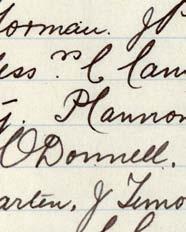 orman. J
ess rs C Cam
J. Plannon
O'Donnell.
arten, J Timo